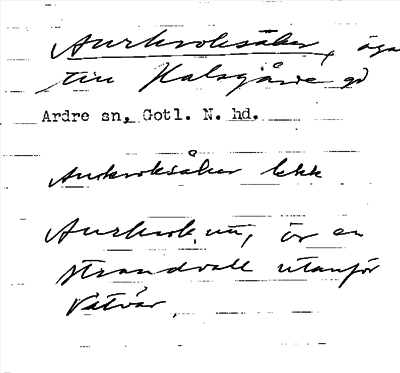 Aurkroksåker, äga
till Halsgårde gd
Ardre sn, Gotl. N. hd.
Aurkroksåker lekk
Aurkrok, un, är en
strandvall utanför
Vätvär.